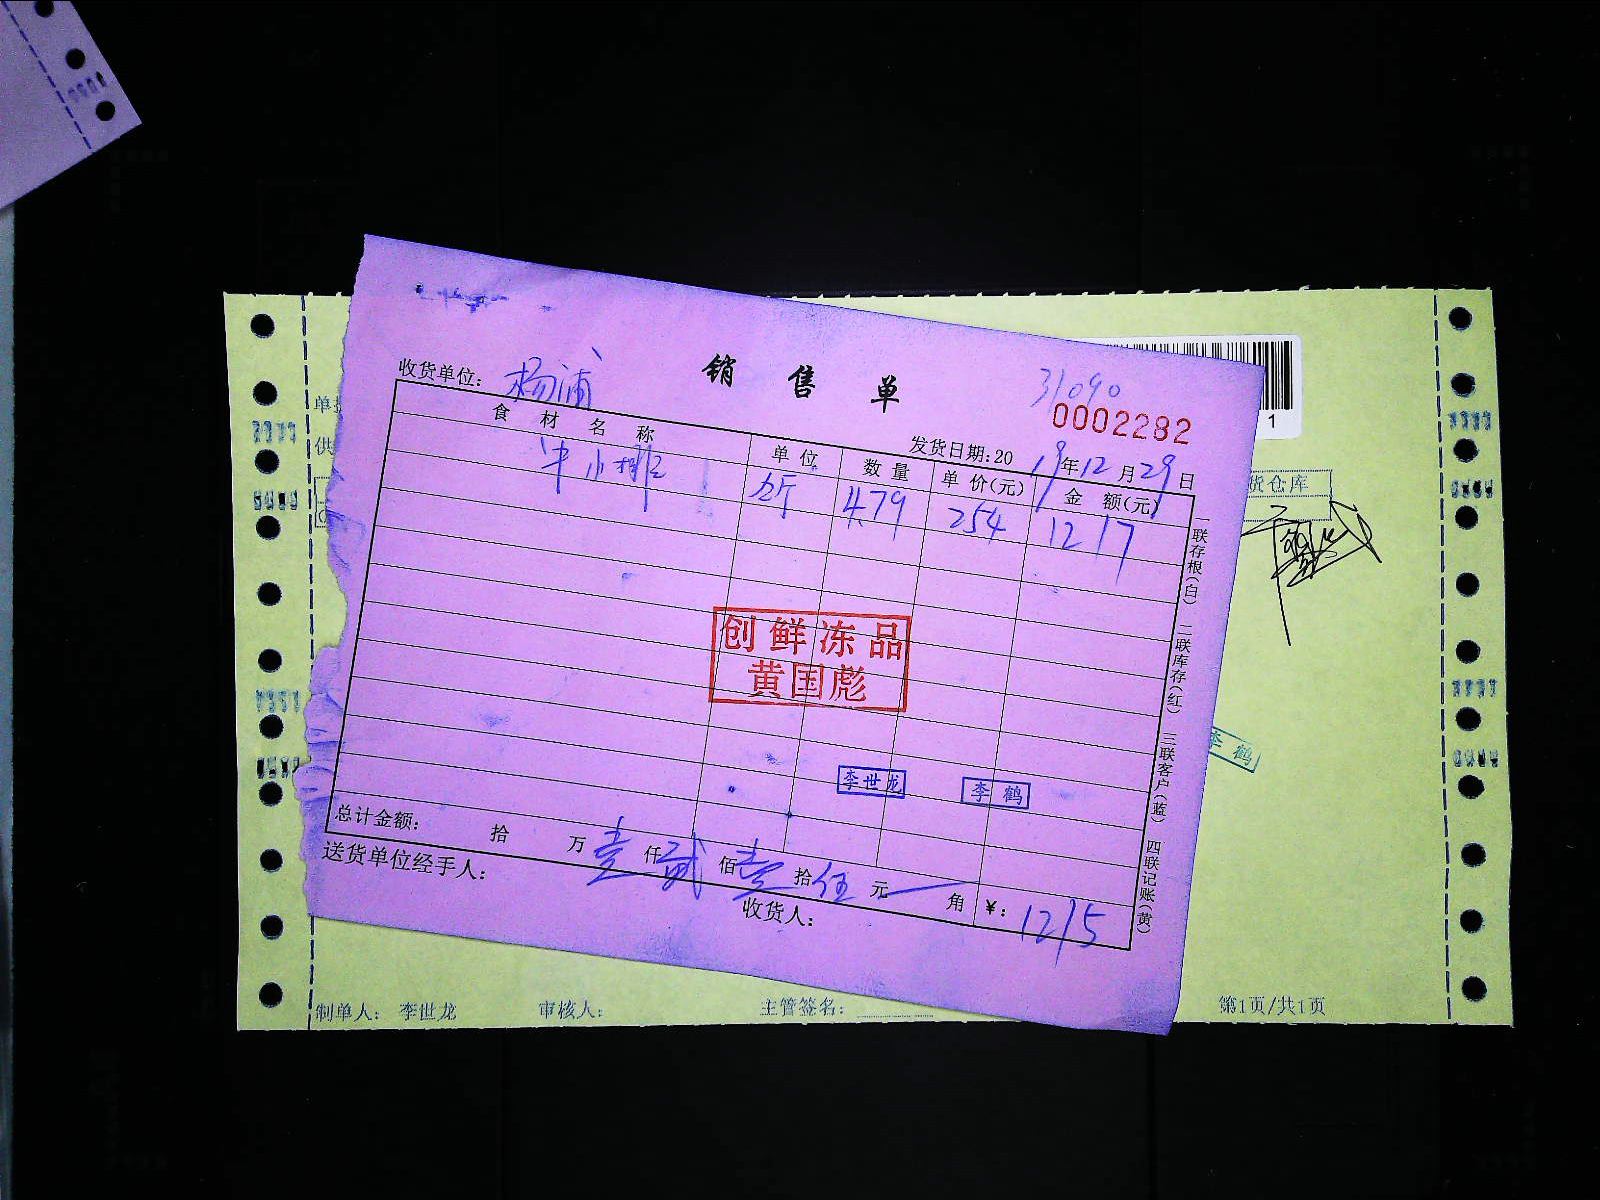 销售单
31090
0002282
收货单位: 杨浦
发货日期:2019年12月29日
食材名称 单位 数量 单价(元) 金额(元)
斤 479 254 1217
创鲜冻品
黄国彪
李世龙 李鹤
总计金额: 拾 万 壹 仟 贰 佰 壹 拾 伍 元 角 ¥: 1215
送货单位经手人: 收货人:
一联存根(白) 二联库存(红) 三联客户(蓝) 四联记账(黄)
1
货仓库
李鹤
制单人: 李世龙 审核人: 主管签名:
第1页/共1页